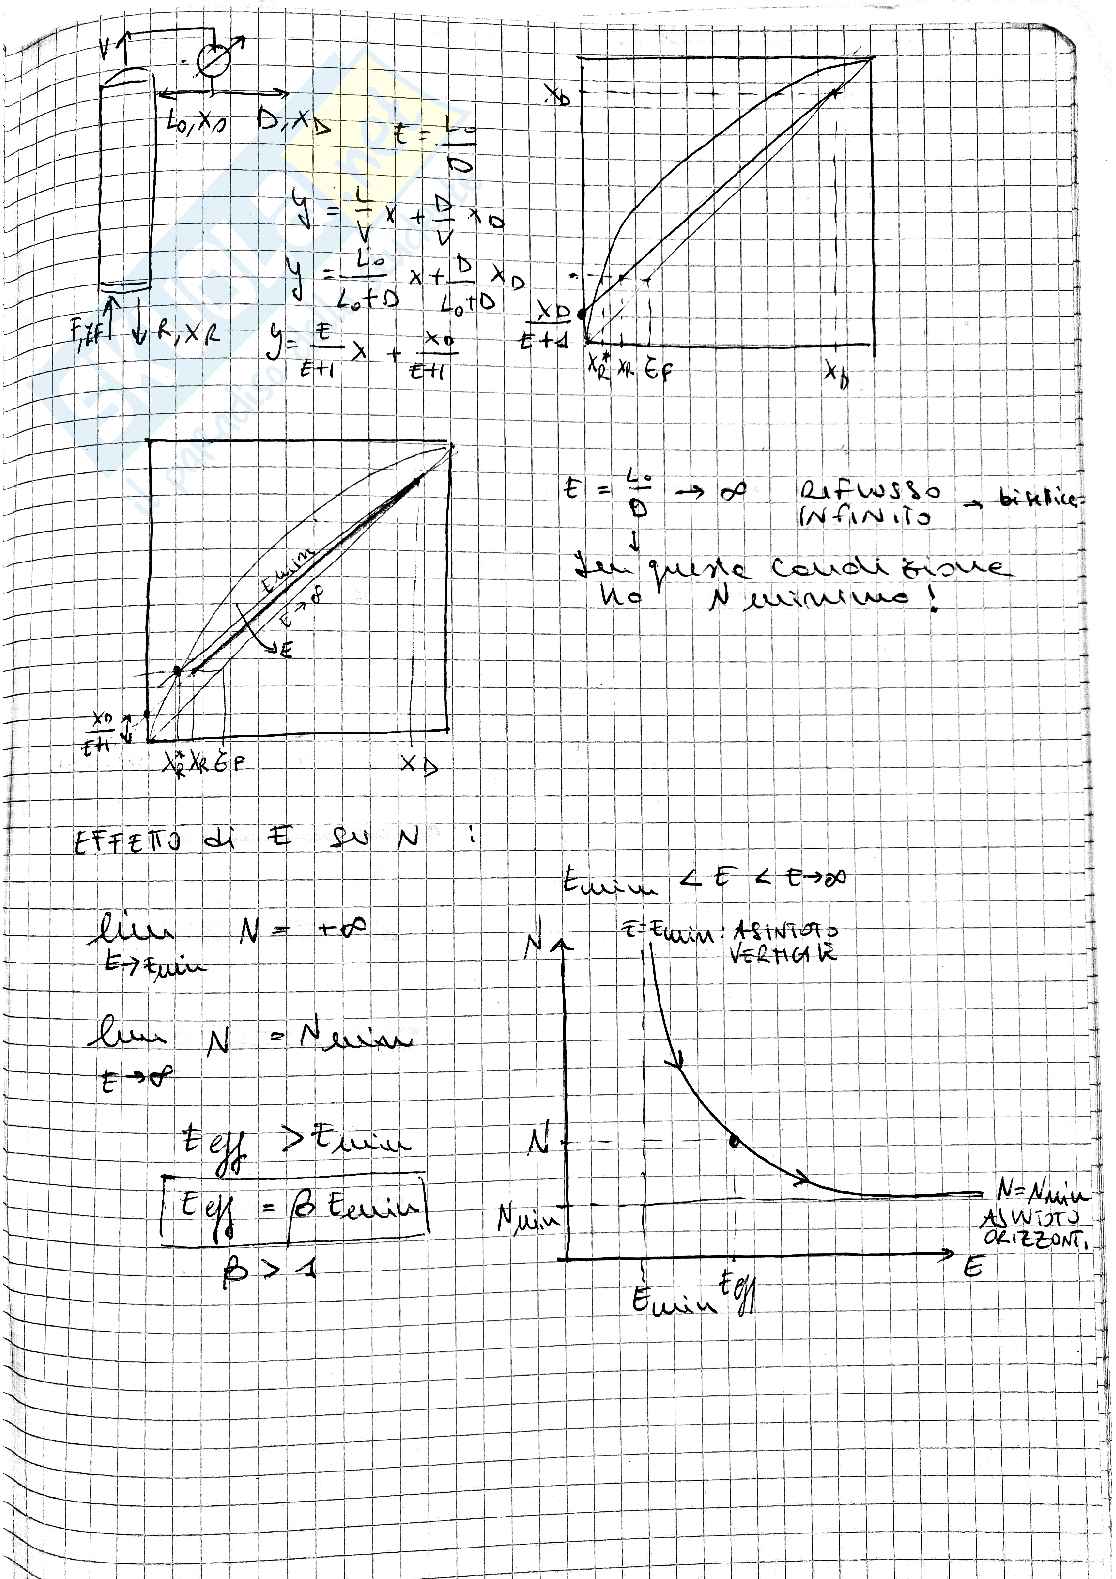 V
L₀, x_D D, x_D
E = L₀/D
y = L/V x + D/V x_D
y = L₀/(L₀+D) x + D/(L₀+D) x_D
y = E/(E+1) x + x_D/(E+1)
F, z_F R, x_R
x_D
x_D/(E+1)
x_R* x_R z_F x_D
E = L₀/D → ∞ RIFLUSSO INFINITO → bisettrice
In questa condizione
ho N minimo!
E min
E→∞
E
x_D/(E+1)
x_R* x_R z_F x_D
EFFETTO di E SU N :
lim N = +∞
E→Emin
lim N = Nmin
E→∞
Eeff > Emin
Eeff = β Emin
β > 1
Emin < E < E→∞
E=Emin: ASINTOTO
VERTICALE
N
N
Nmin
N=Nmin
ASINTOTO
ORIZZONT.
E
Emin Eeff